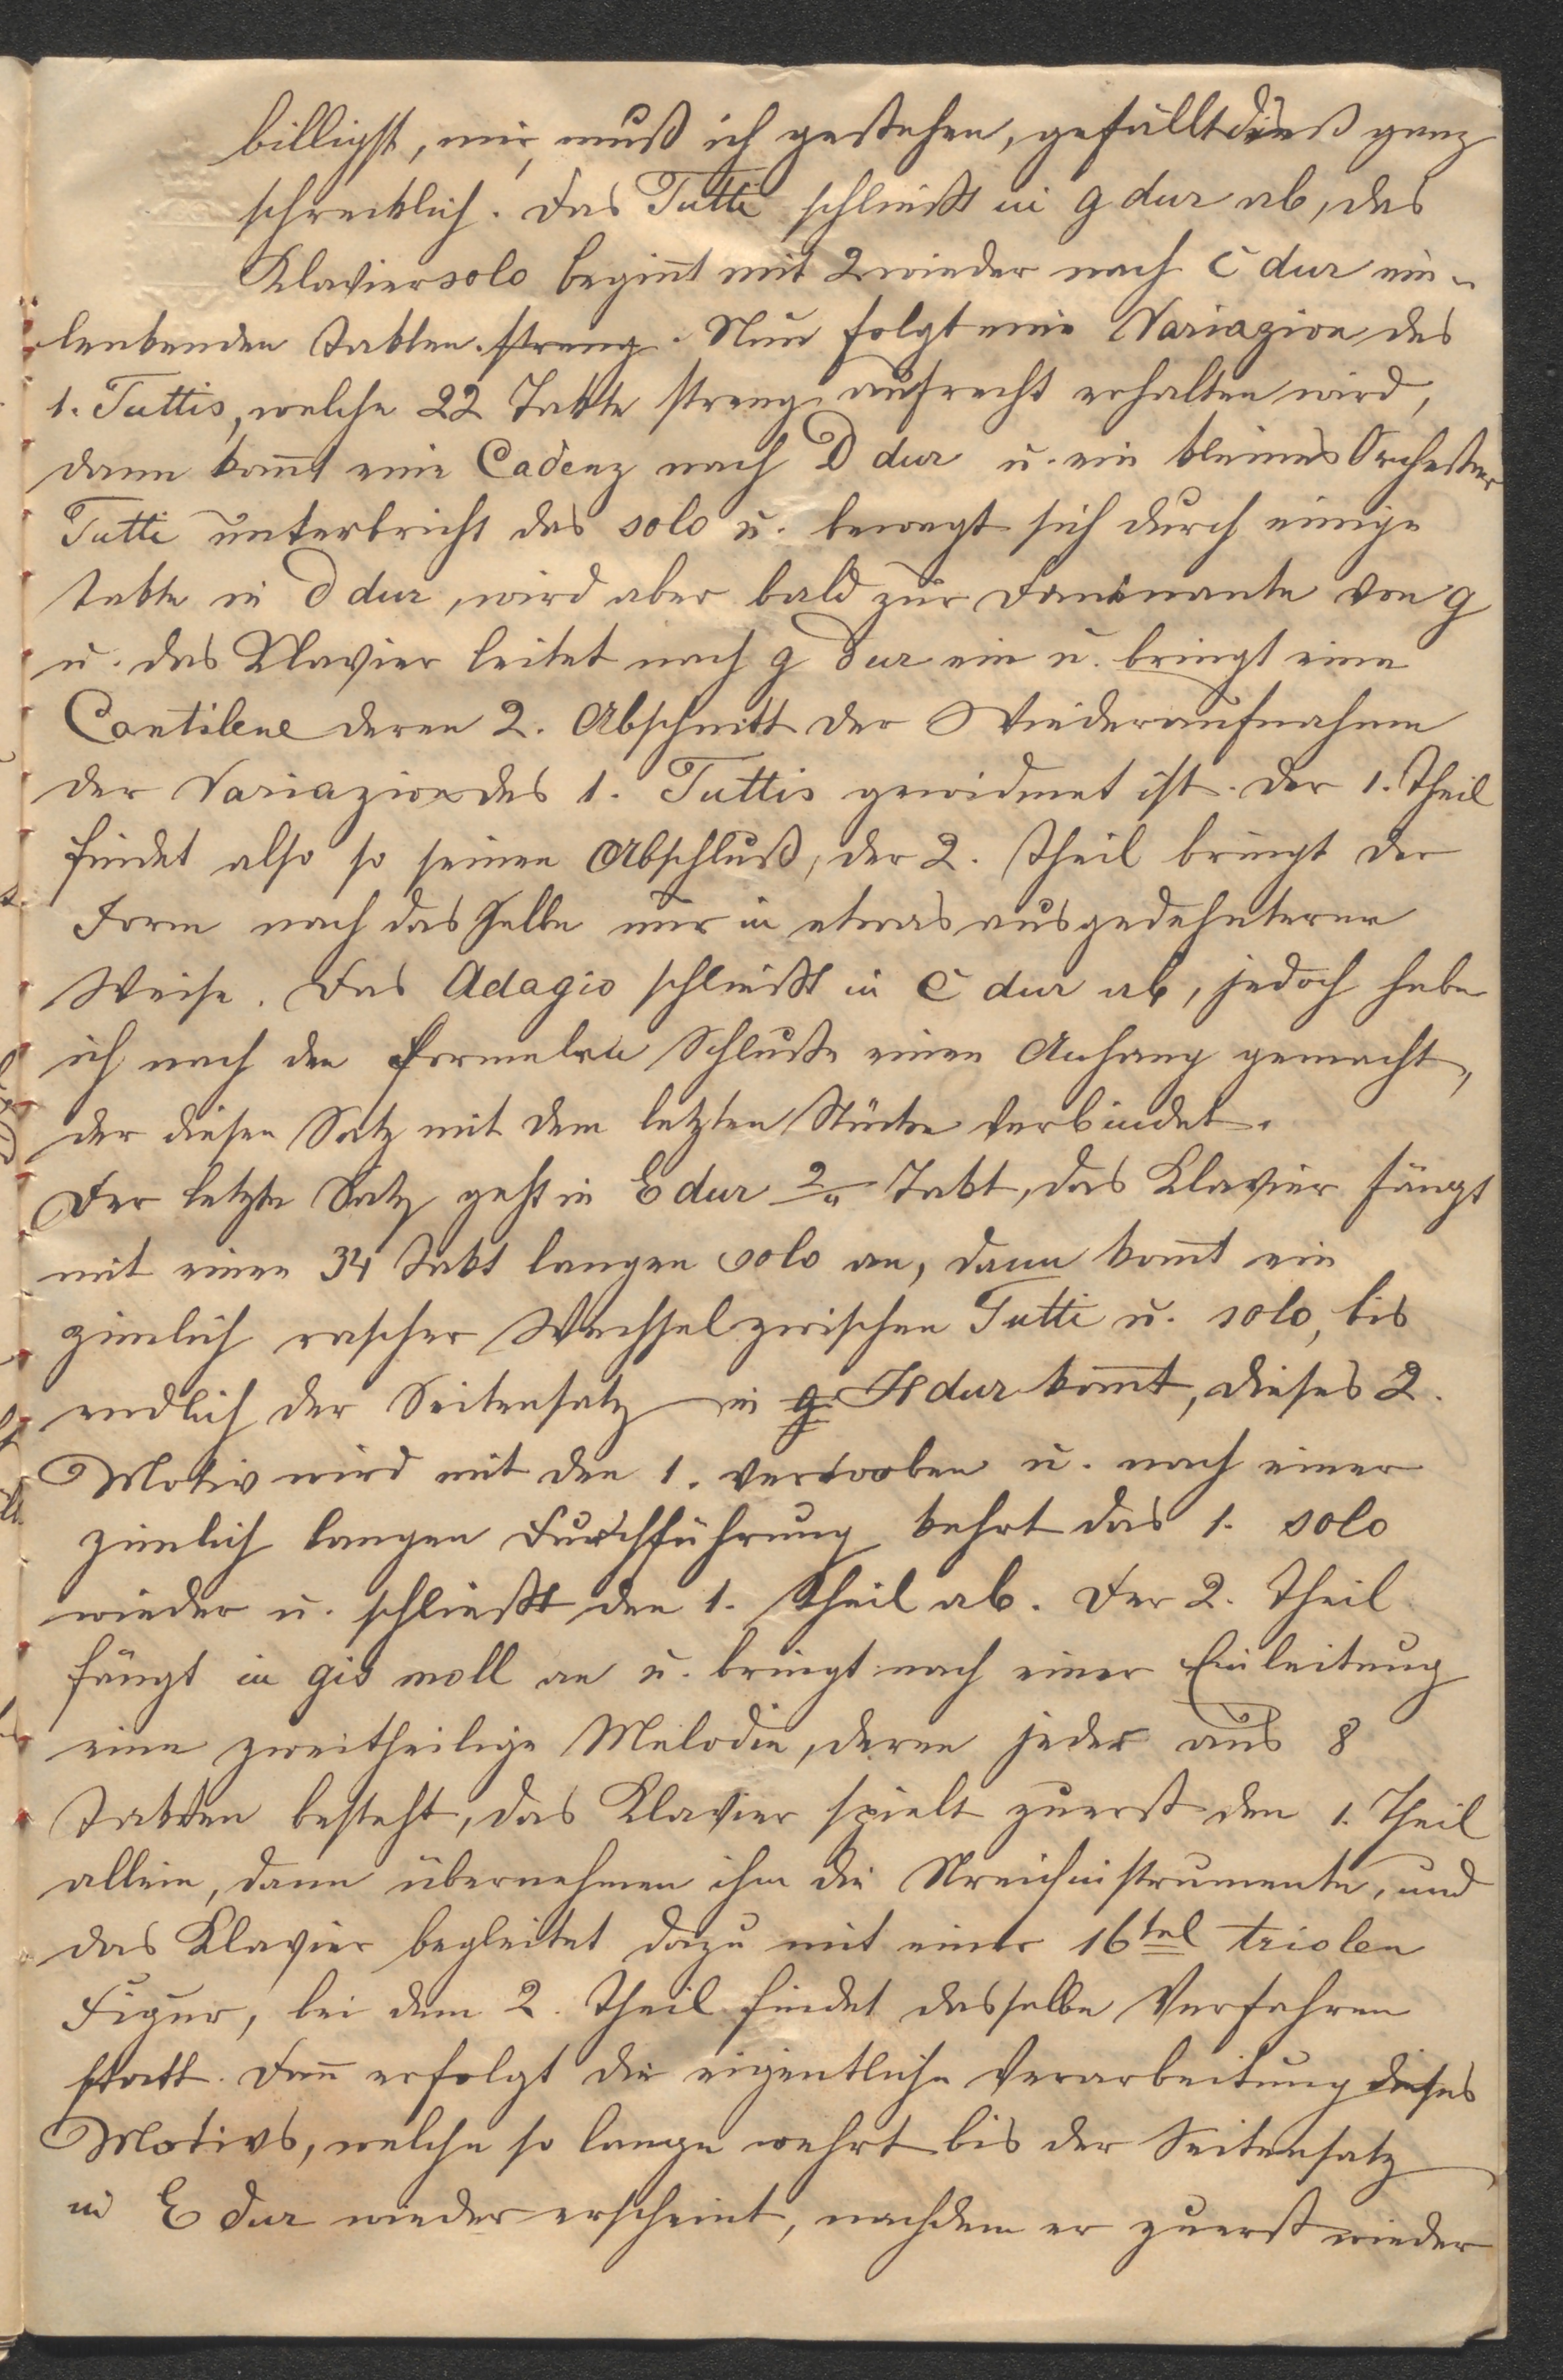 billigst, mir, muß ich gestehen, gefällt dieß ganz
schrecklich. Das Tutti schließt in g dur ab, das
Klaviersolo begint mit 2 wieder nach C dur ein-
lenkenden Takten. streng. Nun folgt eine Variazion des
1. Tuttis, welche 22 Takte streng aufrecht erhalten wird,
dann komt eine Cadenz nach D dur u. ein kleines Orchester
Tutti unterbricht das solo u. bewegt sich durch einige
Takte in D dur, wird aber bald zur Dominante von g
u. das Klavier leitet nach g dur ein u. bringt eine
Cantilene deren 2. Abschnitt der Wiederaufnahme
der Variazion des 1. Tuttis gewidmet ist. Der 1. Theil
findet also so seinen Abschluß, der 2. Theil bringt der
Form nach das Selbe nur in etwas ausgedehnterer
Weise. Das Adagio schließt in C dur ab, jedoch habe
ich nach den formalen Schluße einen Anhang gemacht,
der diesen Satz mit dem letzten Stücke verbindet.
Der letzte Satz geht in E dur 2/4 Takt, das Klavier fängt
mit einen 34 Takt langen solo an, dann komt ein
zimlich rascher Wechsel zwischen Tutti u. solo, bis
endlich der Seitensatz in g H dur komt, dieses 2.
Motiv wird mit den 1. verwoben u. nach einer
zimlich langen Durchführung kehrt das 1. solo
wieder u. schließt den 1. Theil ab. Der 2. Theil
fängt in gis moll an u. bringt nach einer Einleitung
eine zweitheilige Melodie, deren jeder aus 8
Takten besteht, das Klavier spielt zuerst den 1. Theil
allein, dann übernehmen ihn die Streichinstrumente, und
das Klavier begleitet dazu mit einer 16tel triolen
Figur, bei dem 2. Theil findet dasselbe Verfahren
statt. Dan erfolgt die eigentliche Verarbeitung dieses
Motivs, welche so lange wehrt bis der Seitensatz
in E dur wieder erscheint, nachdem er zuerst wieder